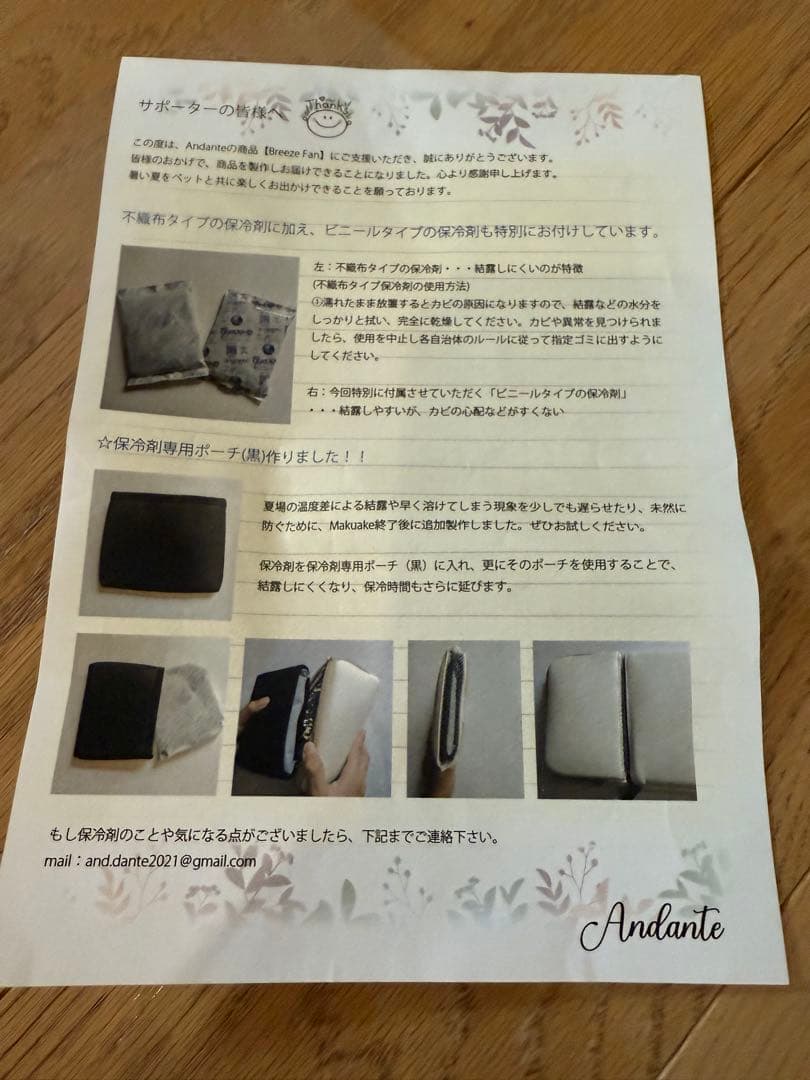 サポーターの皆様へ
Thanks
この度は、Andanteの商品【Breeze Fan】にご支援いただき、誠にありがとうございます。
皆様のおかげで、商品を製作しお届けできることになりました。心より感謝申し上げます。
暑い夏をペットと共に楽しくお出かけできることを願っております。
不織布タイプの保冷剤に加え、ビニールタイプの保冷剤も特別にお付けしています。
左：不織布タイプの保冷剤・・・結露しにくいのが特徴
(不織布タイプ保冷剤の使用方法)
①濡れたまま放置するとカビの原因になりますので、結露などの水分を
しっかりと拭い、完全に乾燥してください。カビや異常を見つけられま
したら、使用を中止し各自治体のルールに従って指定ゴミに出すように
してください。
右：今回特別に付属させていただく「ビニールタイプの保冷剤」
・・・結露しやすいが、カビの心配などがすくない
☆保冷剤専用ポーチ(黒)作りました！！
夏場の温度差による結露や早く溶けてしまう現象を少しでも遅らせたり、未然に
防ぐために、Makuake終了後に追加製作しました。ぜひお試しください。
保冷剤を保冷剤専用ポーチ（黒）に入れ、更にそのポーチを使用することで、
結露しにくくなり、保冷時間もさらに延びます。
もし保冷剤のことや気になる点がございましたら、下記までご連絡下さい。
mail：and.dante2021@gmail.com
Andante